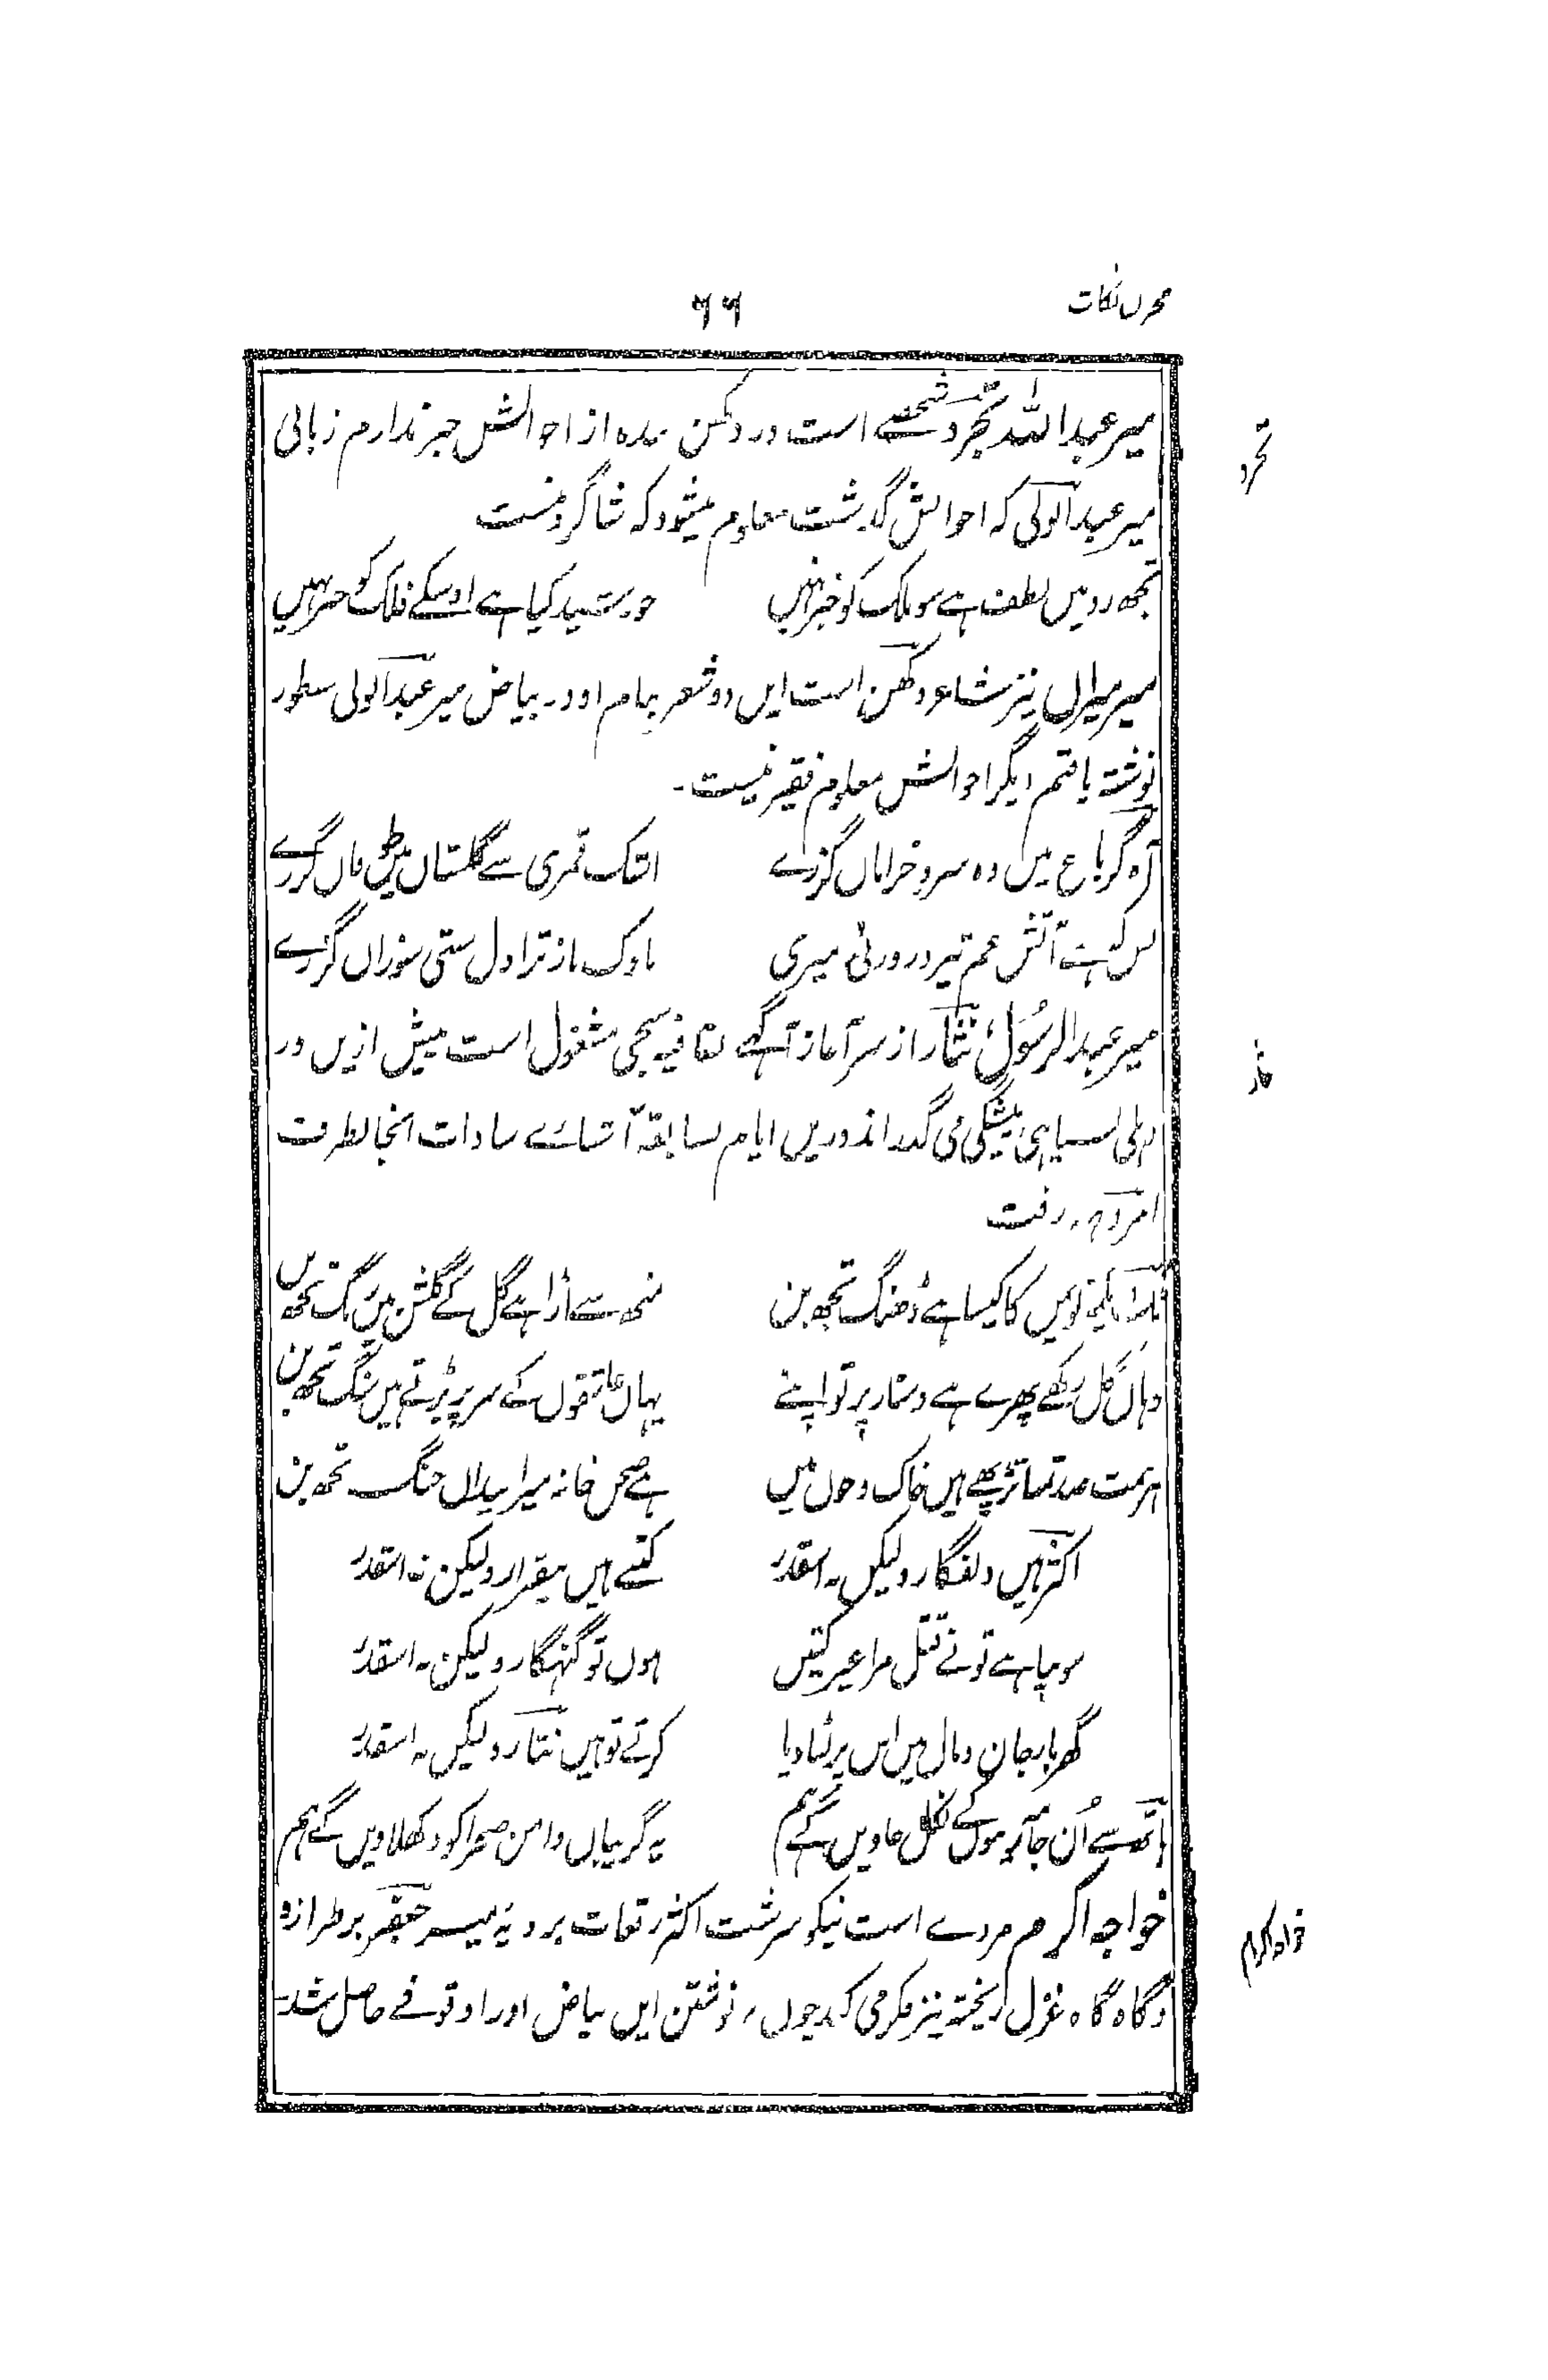 مخزن نکات
۶۶
میر عبداللہ تجرد شخصے است در دکھن بندہ از احوالش خبر ندارم زبانی
تجرد
میر عبدالولی کہ احوالش گذشت معلوم میشود کہ شاگرد منست
تجھ رو میں لطف ہے سو ملک کو خبر نہیں خورشید کیا ہے اوسکے فلک کو خبر نہیں
میر میراں نیز شاعر دکھن است ایں دو شعر بنام او در بیاض میر عبدالولی سطور
نوشتہ یافتم دیگر احوالش معلوم فقیر نیست۔
آہ گر باغ میں وہ سرو خراماں گزرے اشک قمری سے گلستاں میں طوفاں گزرے
بس کہ ہے آتش غم تیز درونے میری ناوک ناز ترا دل ستی سوزاں گزرے
میر عبدالرسول نثار از سر آغاز آگہے بقافیہ سنجی مشغول است پیش ازیں در
نثار
دہلی بسپاہی پیشگی می گذراند دریں ایام بسابقہ آشنائے سادات آنجا بطرف
امروہہ رفت
وہاں گل رکھے پھرے ہے دستار پر تو اپنے یہاں عاشقوں کے سر پر پڑتے ہیں سنگ تجھ بن
ہر سمت صد تمنا تڑپھے ہیں خاک و خوں میں ہے صحن خانہ میرا میدان جنگ تجھ بن
اکثر ہیں دلفگار ولیکن نہ اسقدر کتنے ہیں بیقرار ولیکن نہ اسقدر
سونپا ہے تو نے قتل مرا غیر کتیں ہوں تو گنہگار ولیکن نہ اسقدر
گھر بار جان و مال میں اس پر لٹا دیا کرتے تو ہیں نثار ولیکن نہ اسقدر
ہاتھ سے اُن جامہ زیبوں کے نکل جاویں گے ہم یہ گریباں دامن صحرا کو دکھلاویں گے ہم
خواجہ اکرم مردے است نیکو سرشت اکثر رقعات بر رویہ میر جعفر بر طرازد
خواجہ اکرم
و گاہ گاہ غزل ریختہ نیز فکر می کند چوں بنوشتن ایں بیاض اورا وقوفے حاصل شد